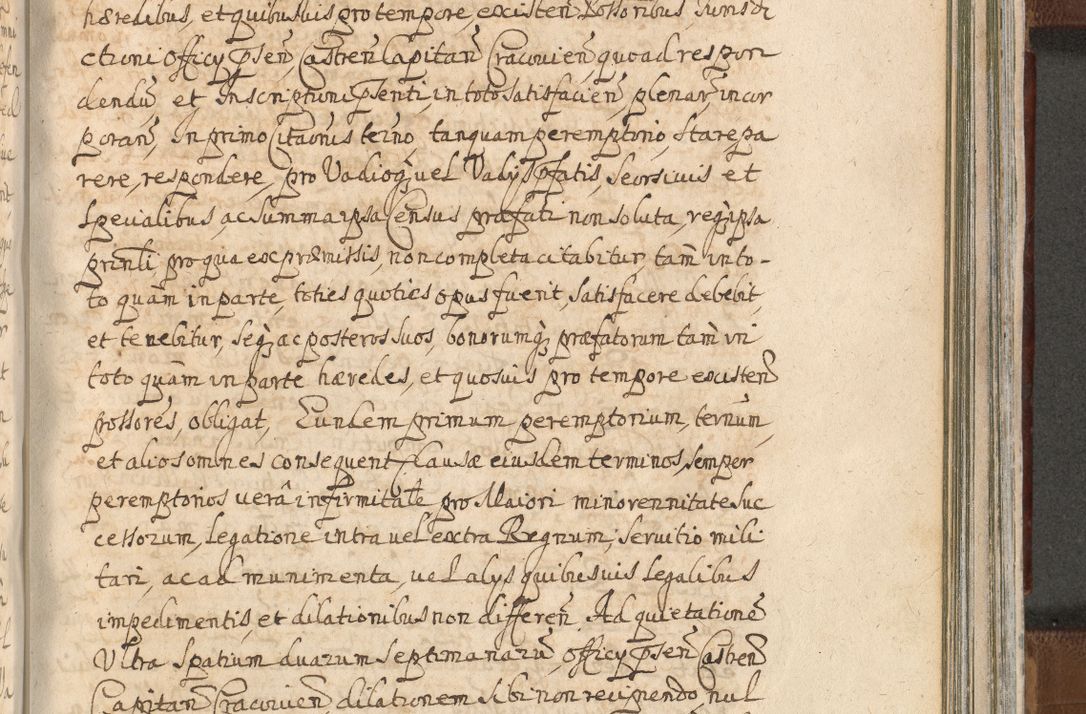 hæredibus, et quibusvis pro tempore, existen̄ Possoribus Jurisdi
ctioni Officÿ p̄sen̄, Castren̄ Capitan̄ Cracovien̄, quoad respon
dendū, et Inscriptioni p̄senti, in toto satisfacien̄, plenar̄, incor
poran̄, In primo Citaōnis teīno, tanquam peremptorio, Stare, pa
rere, respondere, pro Vadioq̃ vel Vadÿs p̄fatis, seorsivis et
spēcialibus, ac summa ipsa Census præfati non soluta, req̃ ipsa
prin̄li, pro qua ex præmissis, non completa citabitur, tam̄ in to-
to quām in parte, toties quoties opus fuerit, satisfacere debebit,
et tenebitur, seq̃ ac posteros suos, bonorumq̃ præfatorum tam̄ in
toto quām in parte hæredes, et quosvis pro tempore existen̄
possores, obligat, Eundem primum peremptorium, ternum,
et alios omnes consequent Causæ eiusdem terminos, semper
peremptorios verâ infirmitate pro Maiori minorennitate suc
cessorum, legatione intra vel extra Regnum, servitio mili
tari, ac ad munimenta, vel alÿs quibusvis legalibus
impedimentis, et dilationibus non differen̄, Ad quietationē
Ultra spatium duarum septimanarū, officÿ p̄sen̄ Castren̄
Capitan̄ Cracovien̄ dilationem sibi non recipiendo, nul